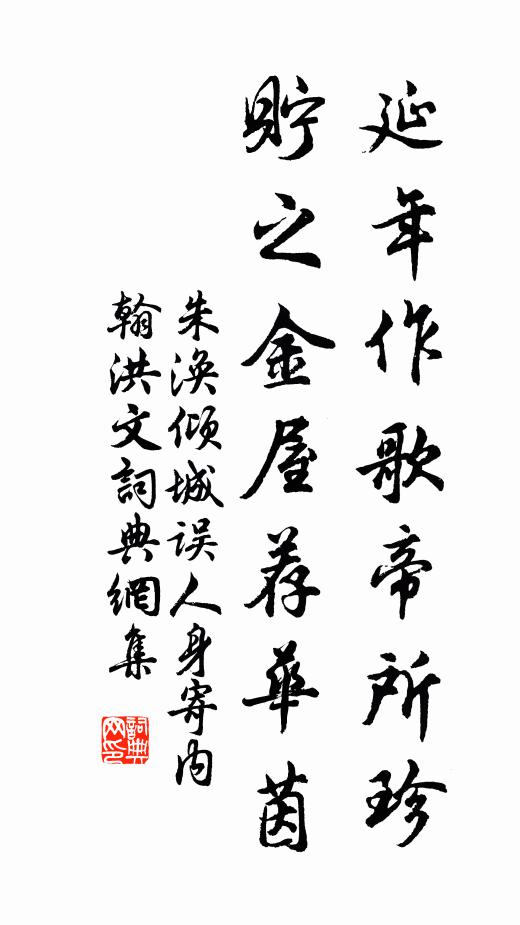 延年作歌帝所珍
貯之金屋荐華茵
朱渙傾城误人身寄内
翰洪文詞典網集
詞典
网印